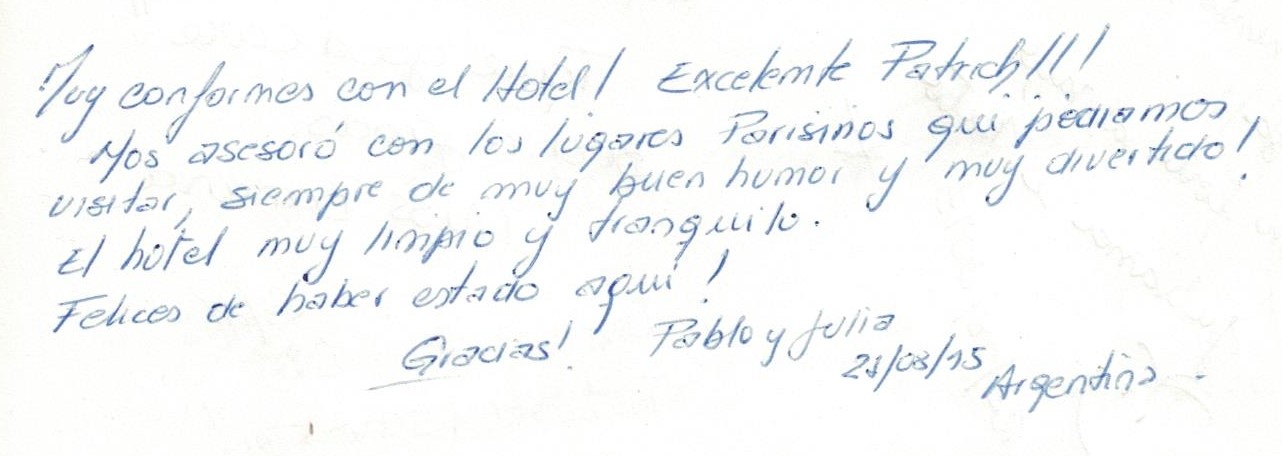 Muy conformes con el Hotel! Excelente Patrich!!!
Nos asesoró con los lugares Parisinos qui pediamos
visitar, siempre de muy buen humor y muy divertido!
El hotel muy limpio y tranquilo.
Felices de haber estado aqui!
Gracias! Pablo y Julia
21/08/15 Argentina -